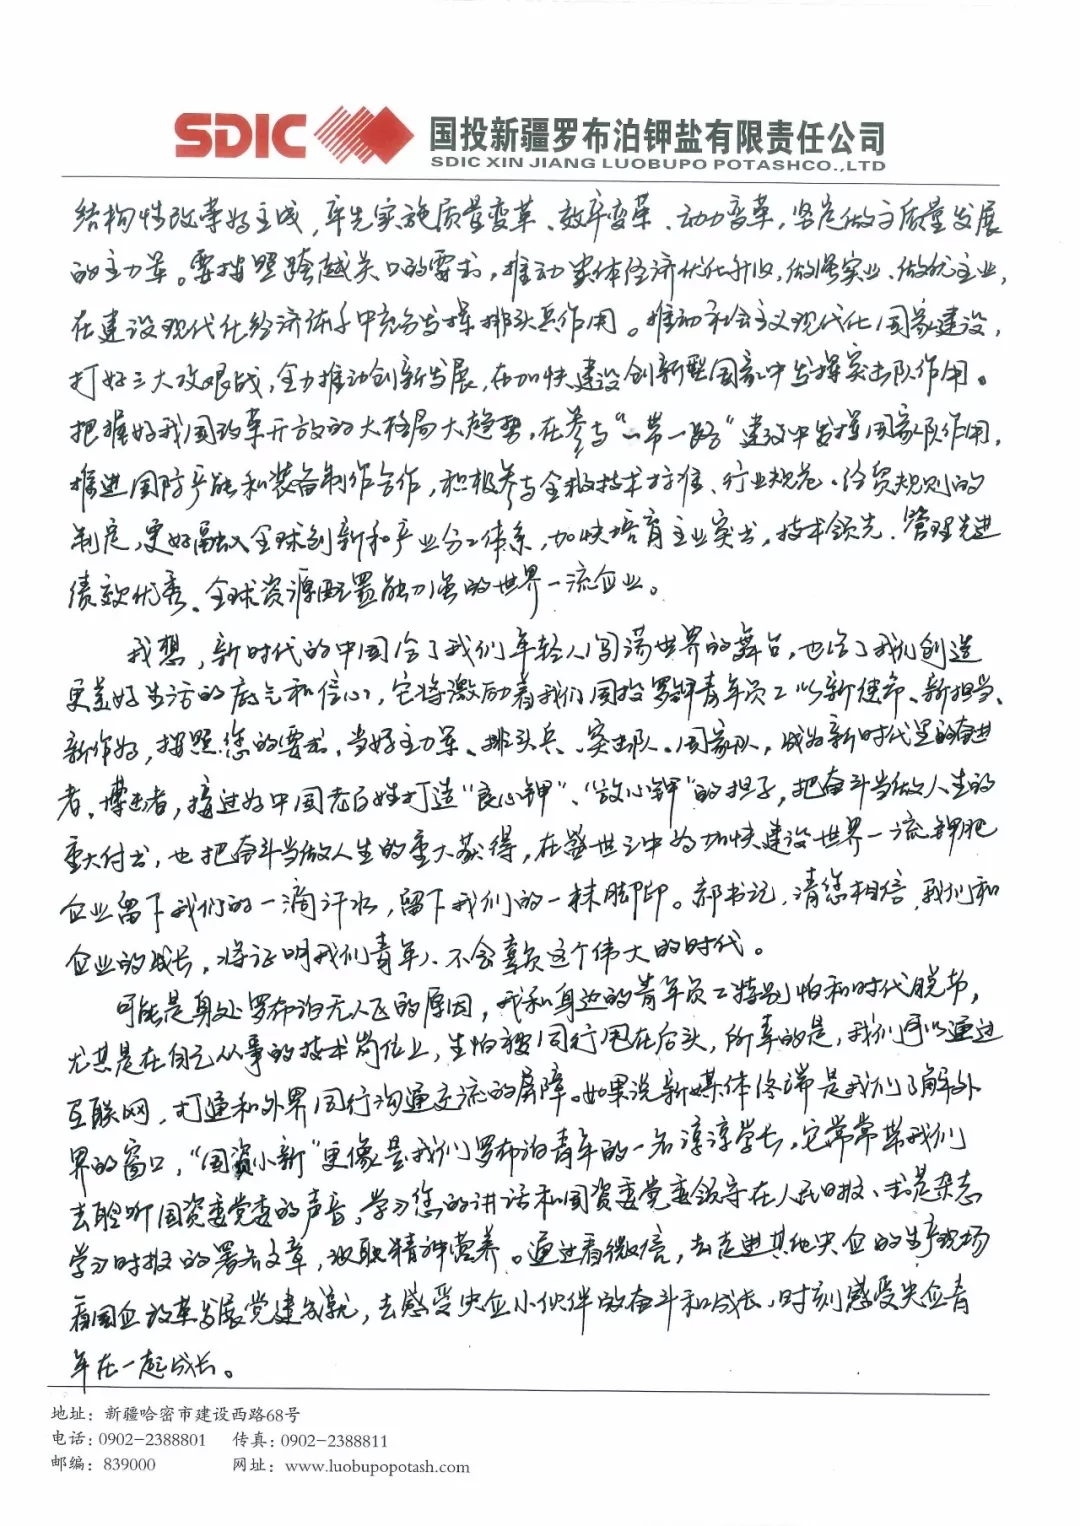 SDIC 国投新疆罗布泊钾盐有限责任公司
SDIC XIN JIANG LUOBUPO POTASHCO.,LTD
结构性改革好主线,率先实施质量变革、效率变革、动力变革,坚定做高质量发展
的主力军。要按照跨越关口的要求,推动实体经济优化升级,做强实业、做优主业,
在建设现代化经济体系中充分发挥排头兵作用。推动社会主义现代化国家建设,
打好三大攻艰战,全力推动创新发展,在加快建设创新型国家中发挥突击队作用。
把握好我国改革开放的大格局大趋势,在参与“一带一路”建设中发挥国家队作用,
推进国防产能和装备制作合作,积极参与全球技术标准、行业规范、经贸规则的
制定,更好融入全球创新和产业分工体系,加快培育主业突出,技术领先、管理先进
绩效优秀、全球资源配置能力强的世界一流企业。
我想,新时代的中国给了我们年轻人闯荡世界的舞台,也给了我们创造
更美好生活的底气和信心,它将激励着我们国投罗钾青年员工以新使命、新担当、
新作为,按照您的要求,当好主力军、排头兵、突击队、国家队,成为新时代里的奋进
者,搏击者,接过好中国老百姓打造“良心钾”、“放心钾”的担子,把奋斗当做人生的
重大付出,也把奋斗当做人生的重大获得,在盛世之中为加快建设世界一流钾肥
企业留下我们的一滴汗水,留下我们的一抹脚印。郝书记,请您相信,我们和
企业的成长,将证明我们青年人不会辜负这个伟大的时代。
可能是身处罗布泊无人区的原因,我和身边的青年员工特别怕和时代脱节,
尤其是在自己从事的技术岗位上,生怕被同行甩在后头,所幸的是,我们可以通过
互联网,打通和外界同行沟通交流的屏障。如果说新媒体终端是我们了解外
界的窗口,“国资小新”更像是我们罗布泊青年的一名谆谆学长,它常常带我们
去聆听国资委党委的声音,学习您的讲话和国资委党委领导在人民日报、求是杂志
学习时报的署名文章,汲取精神营养。通过看微信,去走进其他央企的生产现场
看国企改革发展党建成就,去感受央企小伙伴的奋斗和成长,时刻感受央企青
年在一起成长。
地址:新疆哈密市建设西路68号
电话:0902-2388801 传真:0902-2388811
邮编:839000 网址:www.luobupopotash.com